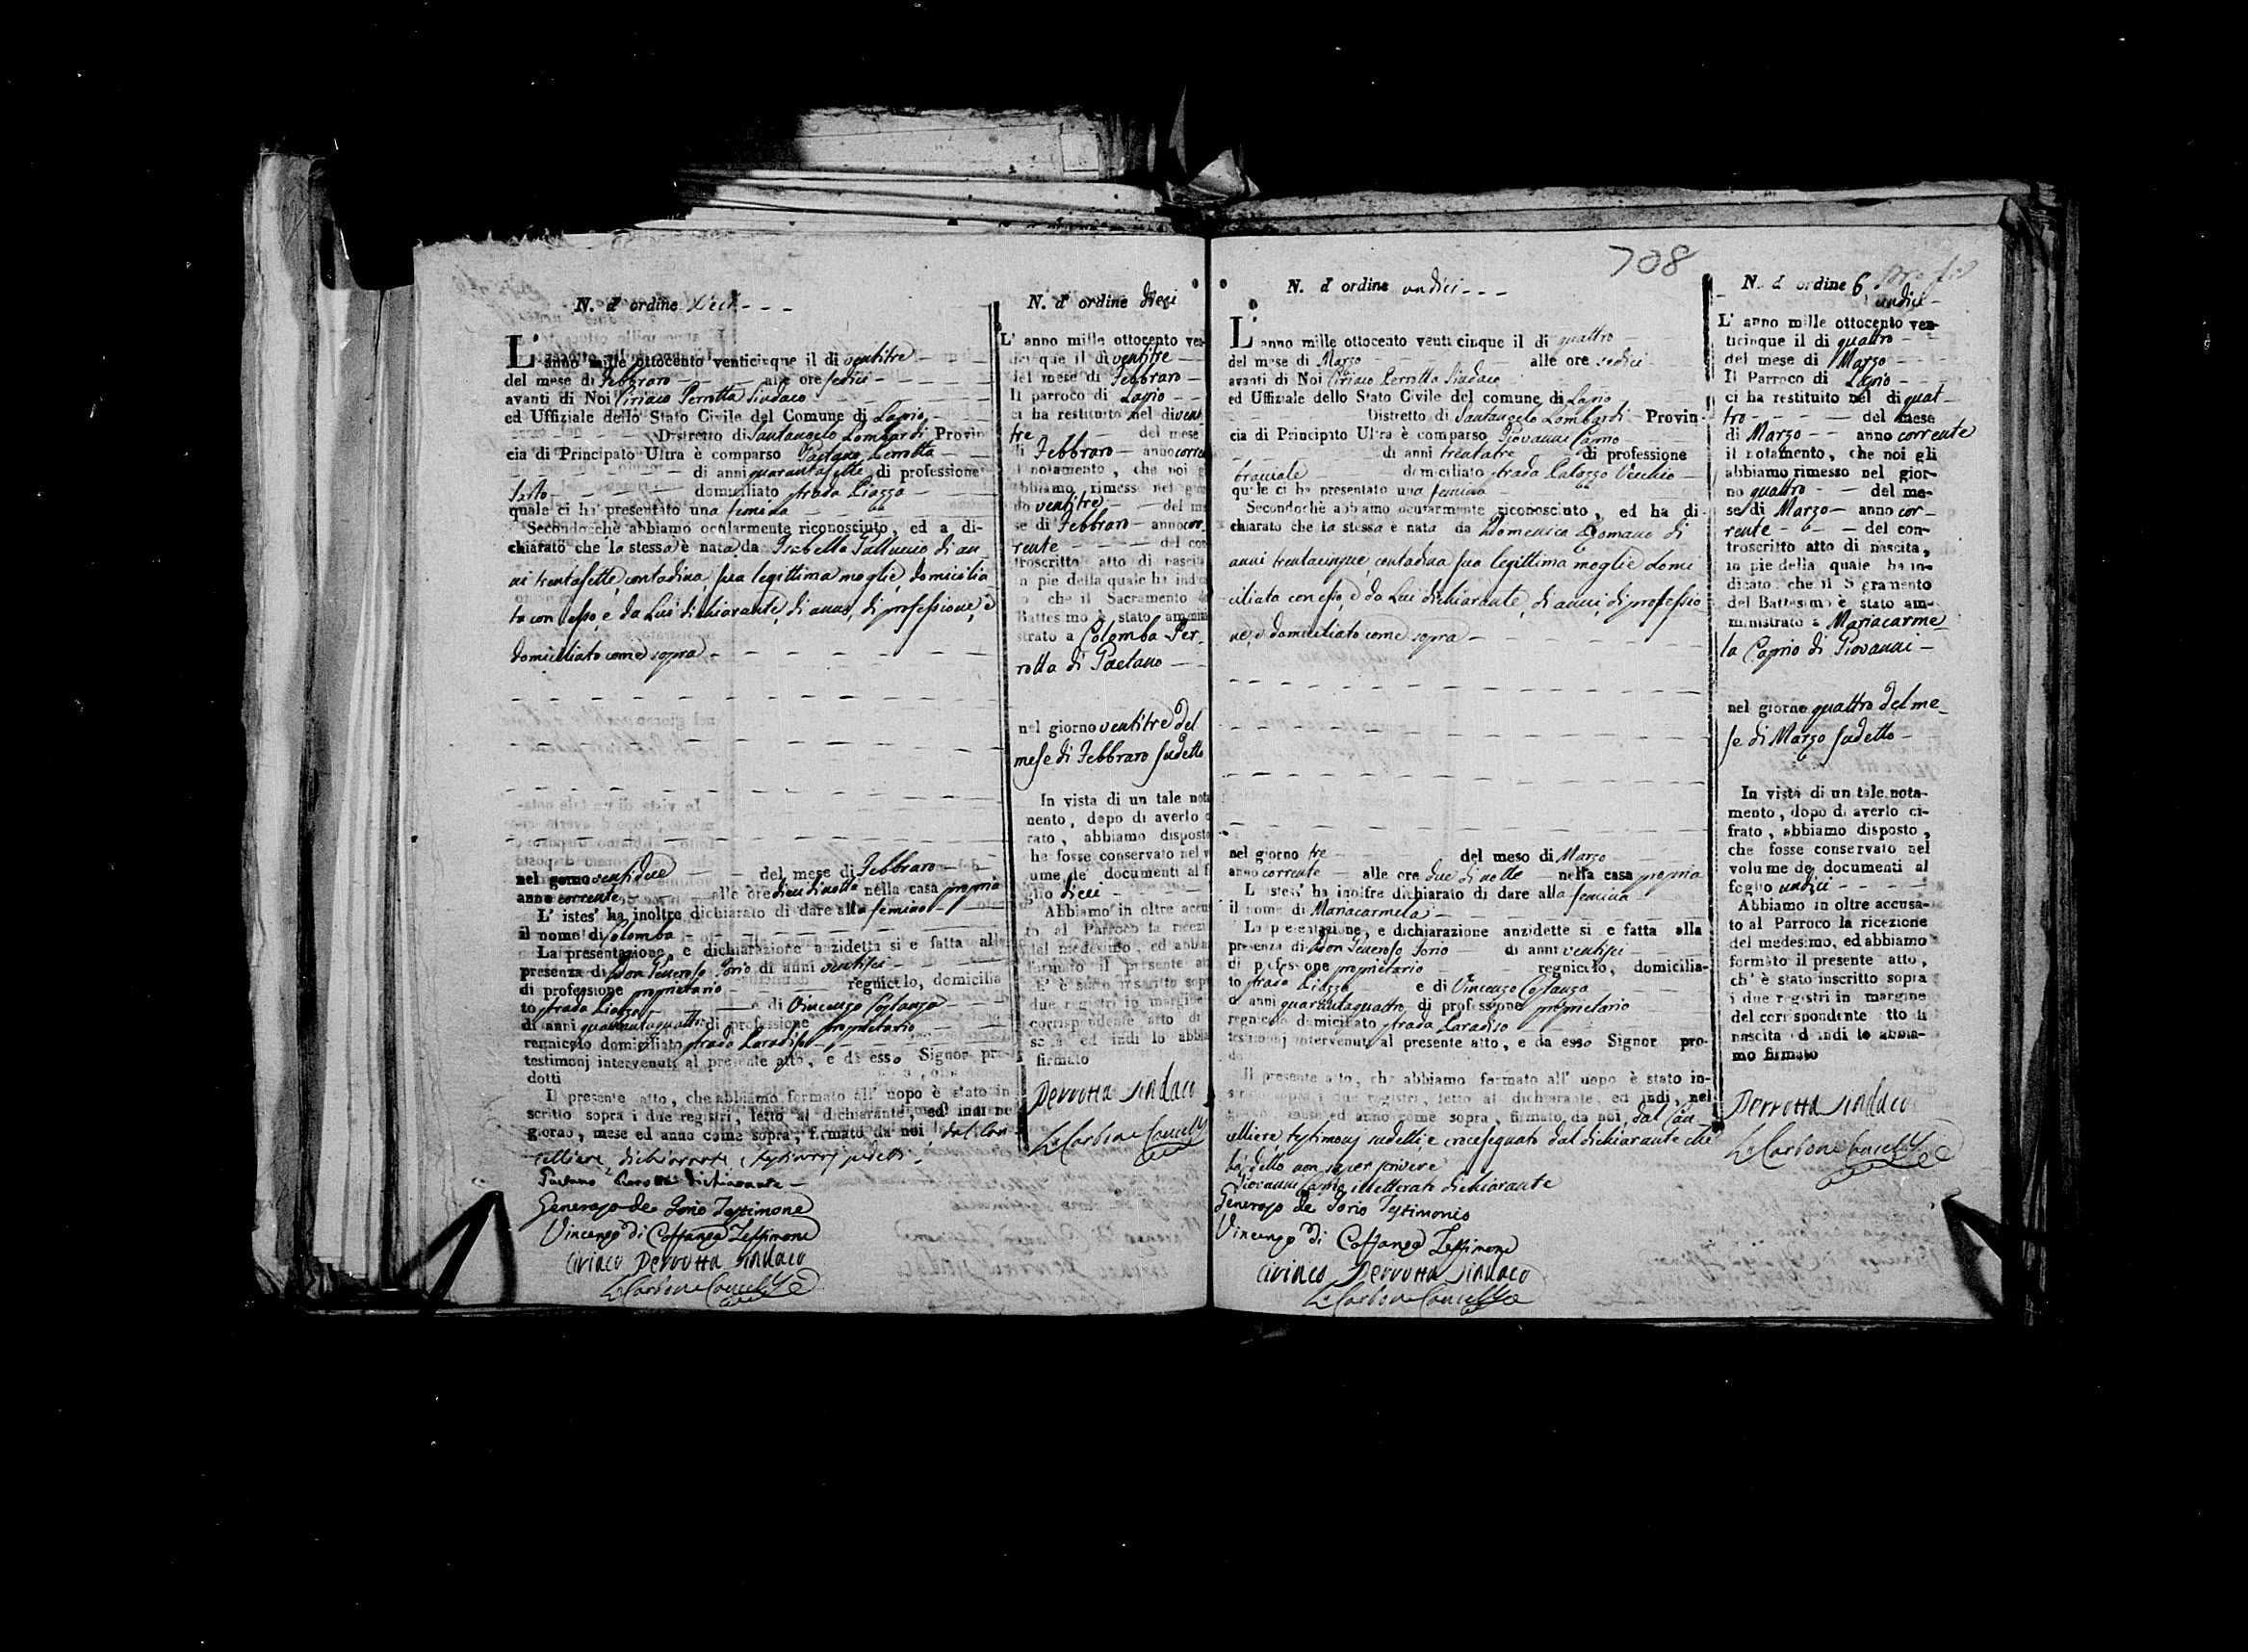 N. d' ordine Dieci
L' anno mille ottocento venticinque il di ventitre
del mese di Febbraro alle ore sedici
avanti di Noi Ciriaco Perrotta Sindaco
ed Uffiziale dello Stato Civile del Comune di Lapio
Distretto di Santangelo Lombardi Provin
cia di Principato Ultra è comparso Gaetano Perrotta
di anni quarantasette di professione
sarto domiciliato strada Piazza
quale ci ha presentato una femina
Secondochè abbiamo ocularmente riconosciuto, ed a di-
chiarato che la stessa è nata da Isabella Gallucci di an
ni trentasette, contadina sua legittima moglie domicilia
ta con esso, e da Lui dichiarante, di anni, di professione, e
domiciliato come sopra
nel gorno ventidue del mese di Febbraro
anno corrente alle ore dieci di notte nella casa propria
L' istes' ha inoltre dichiarato di dare alla femina
il nome di Colomba
La presentazione, e dichiarazione anzidetta si e fatta alla
presenza di Don Generoso Iorio di anni ventisei
di professione proprietario regnicolo, domicilia
to strada Piazza e di Vincenzo Costanza
di anni quarantaquattro di professione proprietario
regnicolo domiciliato strada Paradiso
testimonj intervenuti al presente atto, e da esso Signor pro-
dotti
Il presente atto, che abbiamo formato all' uopo è stato in
scritto sopra i due registri, letto al dichiarante, ed indi ne
giorno, mese ed anno come sopra, firmato da noi, dal Can
celliere, dichiarante, e testimonj sudetti
Gaetano Perrotta dichiarante
Generoso de Iorio Testimone
Vincenzo di Costanza Testimone
Ciriaco Perrotta Sindaco
Carbone Cancell
N. d' ordine dieci
L' anno mille ottocento ven
cinque il di ventitre
del mese di Febbraro
Il parroco di Lapio
ci ha restituito nel di venti
tre del mese
di Febbraro anno corre
il notamento, che noi g
abbiamo rimesso nel gior
no ventitre del me
se di Febbraro anno cor
rente del con
troscritto atto di nascita
in pie della quale ha indica
to che il Sacramento
Battesimo è stato ammini
strato a Colomba Per
rotta di Gaetano
nel giorno ventitre del
mese di Febbraro sudetto
In vista di un tale nota
mento, dopo di averlo c
rato, abbiamo disposto
che fosse conservato nel v
ume de' documenti al f
glio dieci
Abbiamo in oltre accus
to al Parroco la ricezi
del medesimo, ed abbia
formato il presente at
ch' è stato inscritto sopr
i due registri in margine
corrispondente atto di
scita ed indi lo abbia
firmato
Perrotta Sindaco
Carbone Cancell
708
N. d' ordine undici
L' anno mille ottocento venticinque il di quattro
del mese di Marzo alle ore sedici
avanti di Noi Ciriaco Perrotta Sindaco
ed Uffiziale dello Stato Civile del comune di Lapio
Distretto di Santangelo Lombardi Provin-
cia di Principato Ultra è comparso Giovanni Caprio
di anni trentatre di professione
bracciale domiciliato strada Palazzo Vecchio
quale ci ha presentato una femina
Secondochè abbiamo ocularmente riconosciuto, ed ha di-
chiarato che la stessa è nata da Domenica Romano di
anni trentacinque, contadina sua legittima moglie domi
ciliata con esso, e da Lui dichiarante, di anni, di professio
ne, e domiciliato come sopra
nel giorno tre del mese di Marzo
anno corrente alle ore due di notte nella casa propria
L' istess' ha inoltre dichiarato di dare alla femina
il nome di Mariacarmela
La presentazione, e dichiarazione anzidette si e fatta alla
presenza di Don Generoso Iorio di anni ventisei
di professione proprietario regnicolo, domicilia-
to strada Piazza e di Vincenzo Costanza
di anni quarantaquattro di professione proprietario
regnicolo domiciliato strada Paradiso
testimonj intervenuti al presente atto, e da esso Signor pro-
Il presente atto, che abbiamo formato all' uopo è stato in-
scritto sopra i due registri, letto al dichiarante, ed indi, nel
giorno, mese ed anno come sopra, firmato da noi, dal Can
celliere, testimonj sudetti, e crocesegnato dal dichiarante che
ha detto non saper scrivere
Giovanni Caprio illetterato dichiarante
Generoso de Iorio Testimonio
Vincenzo di Costanza Testimone
Ciriaco Perrotta Sindaco
Carbone Cancell
N. d' ordine 6
undici
L' anno mille ottocento ven-
ticinque il di quattro
del mese di Marzo
Il Parroco di Lapio
ci ha restituito nel di quat
tro del mese
di Marzo anno corrente
il notamento, che noi gli
abbiamo rimesso nel gior-
no quattro del me-
se di Marzo anno cor-
rente del con-
troscritto atto di nascita,
in pie della quale ha in-
dicato che il Sagramento
del Battesimo è stato am-
ministrato a Mariacarme
la Caprio di Giovanni
nel giorno quattro del me
se di Marzo sudetto
In vista di un tale nota-
mento, dopo di averlo ci-
frato, abbiamo disposto,
che fosse conservato nel
volume de' documenti al
foglio undici
Abbiamo in oltre accusa-
to al Parroco la ricezione
del medesimo, ed abbiamo
formato il presente atto,
ch' è stato inscritto sopra
i due registri in margine
del corrispondente atto di
nascita ed indi lo abbia-
mo firmato
Perrotta Sindaco
Carbone Cancell